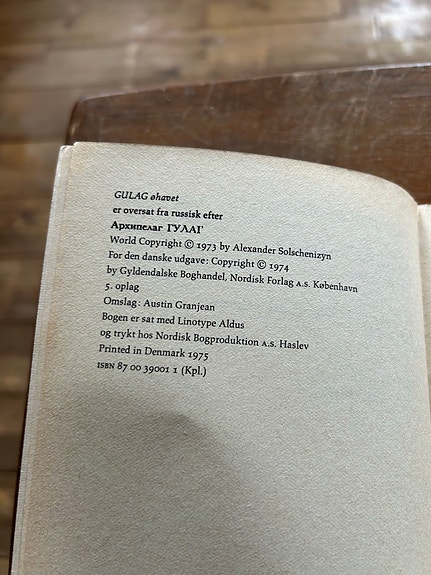 GULAG øhavet
er oversat fra russisk efter
Архипелаг ГУЛАГ
World Copyright © 1973 by Alexander Solschenizyn
For den danske udgave: Copyright © 1974
by Gyldendalske Boghandel, Nordisk Forlag A.S. København
5. oplag
Omslag: Austin Granjean
Bogen er sat med Linotype Aldus
og trykt hos Nordisk Bogproduktion A.S. Haslev
Printed in Denmark 1975
ISBN 87 00 39001 1 (Kpl.)